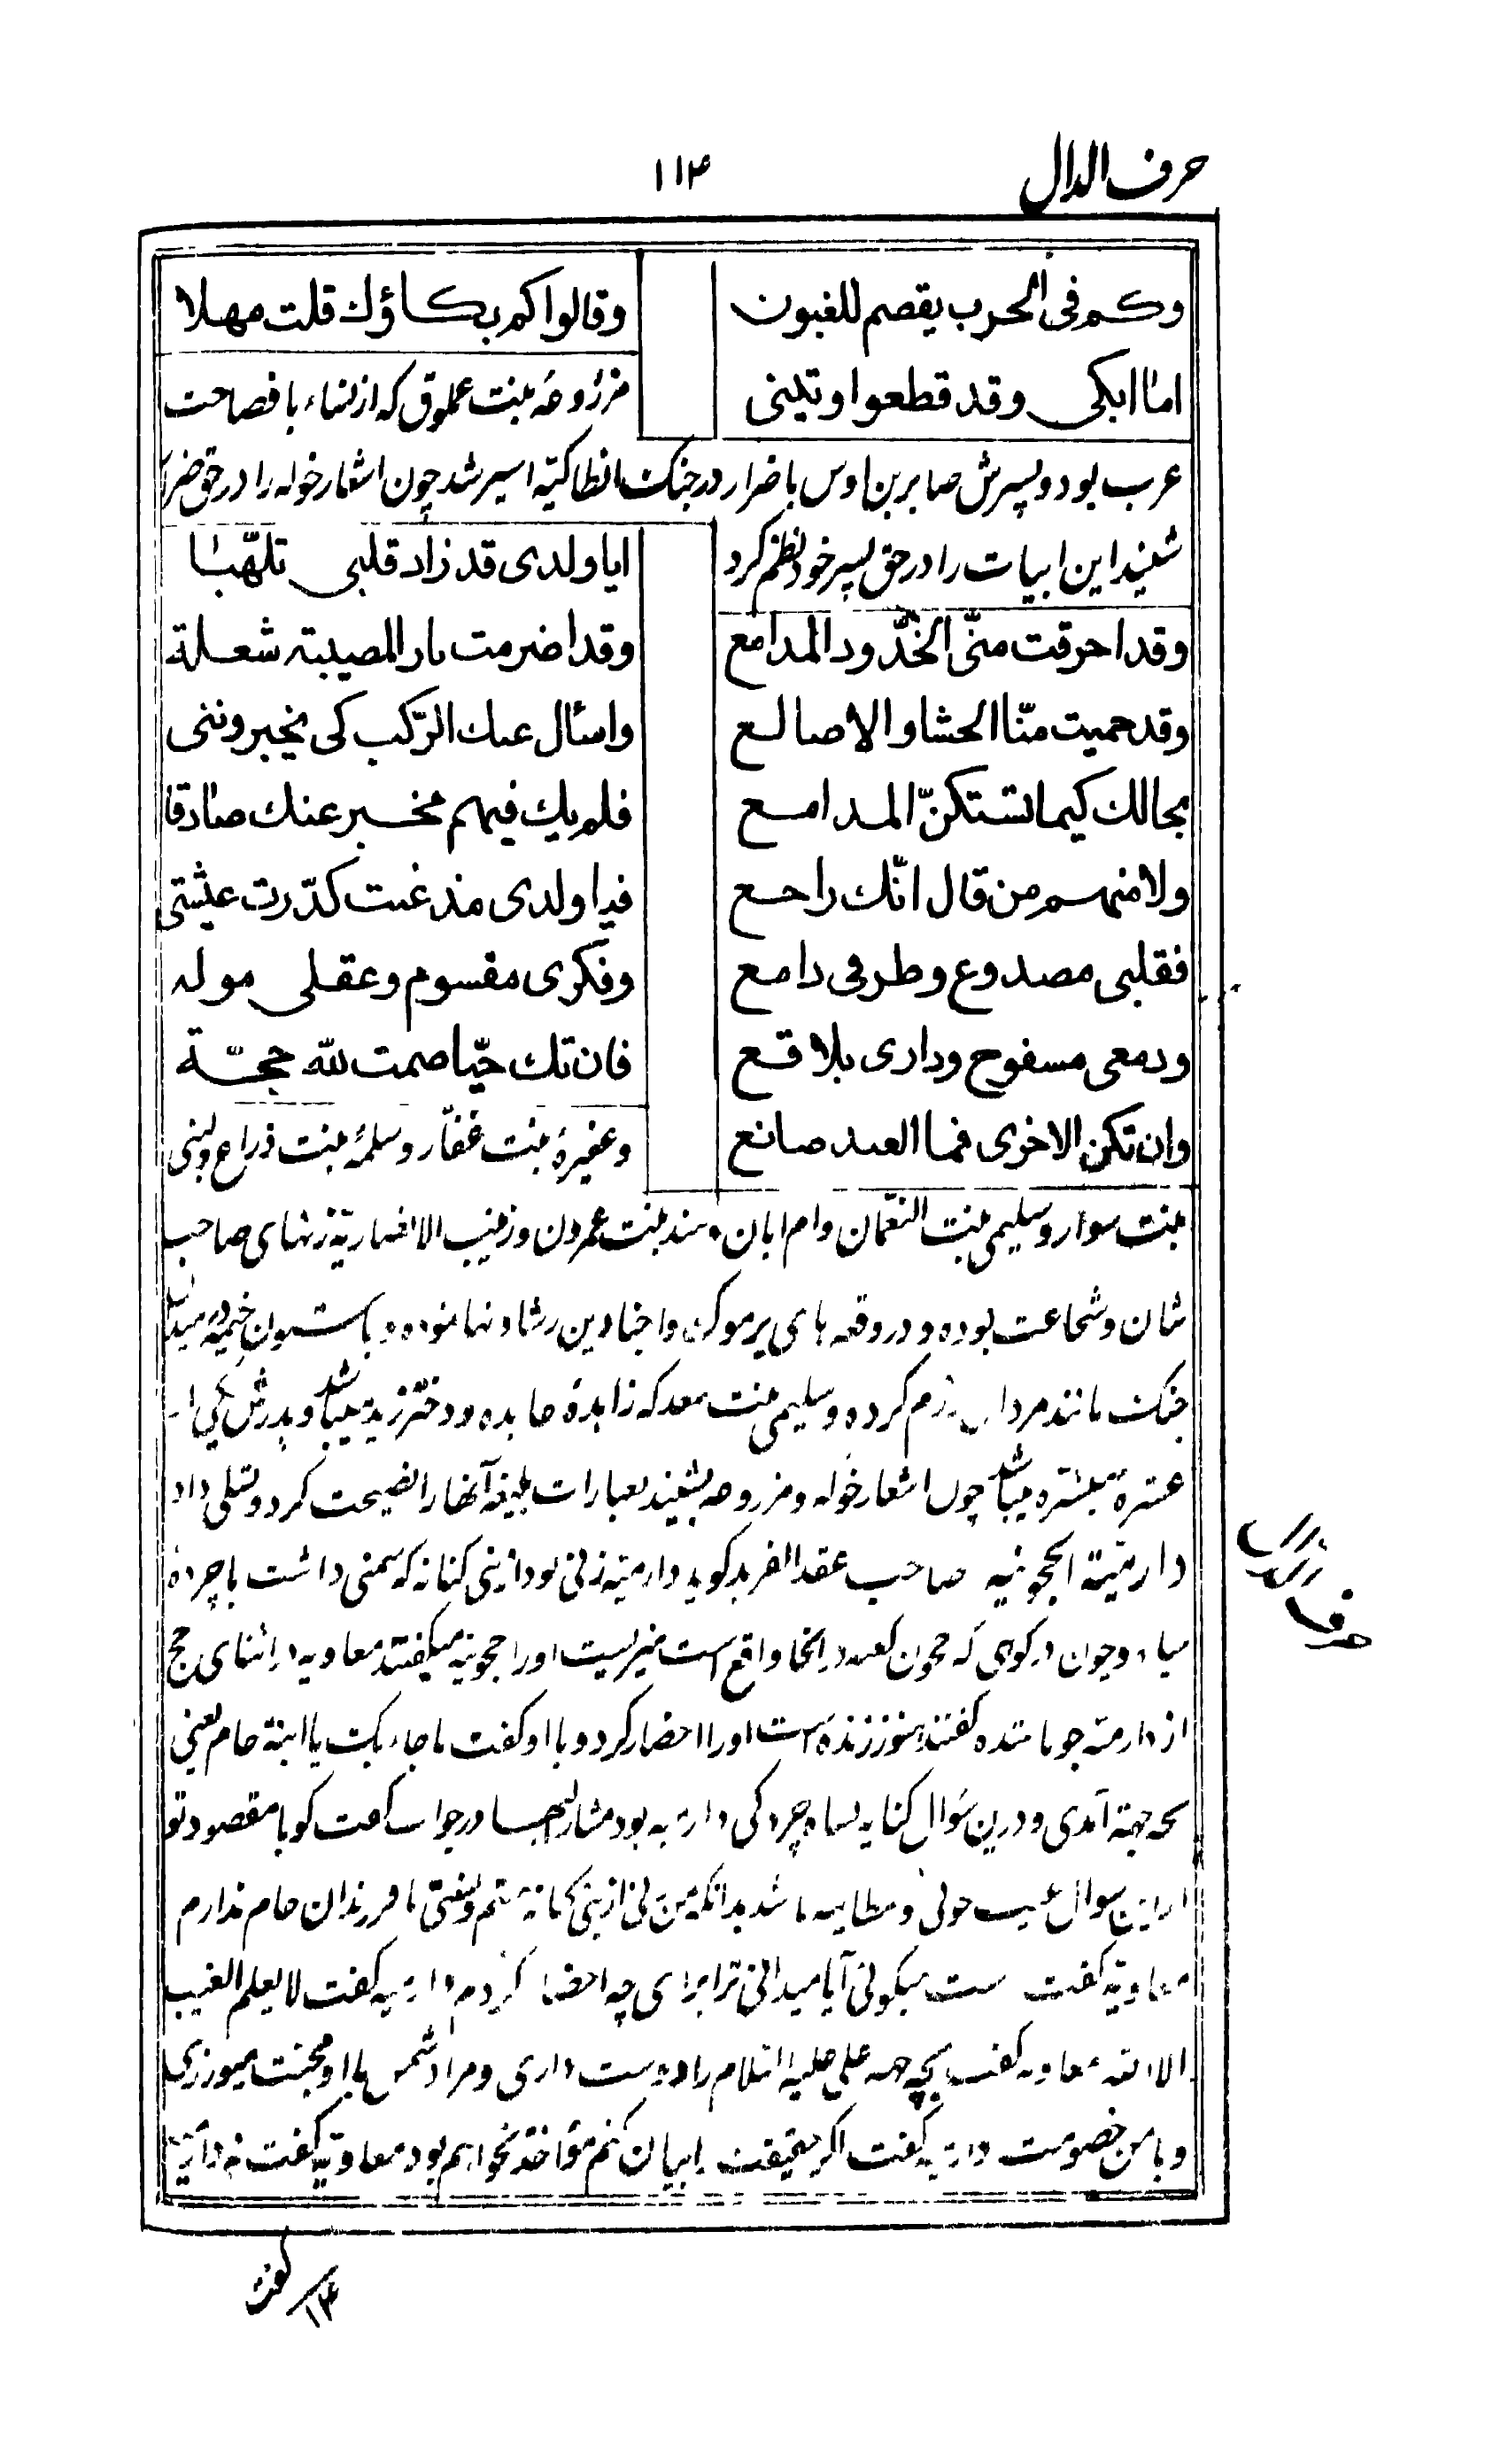 حرف الدال ۱۱۴
وكم فى الحرب يقصم للغبون وقالوا كم بكاؤك قلت مهلا
اما ابكى وقد قطعوا وتينى مزروعهٔ بنت عملوق كه از نساء با فصاحت
عرب بود و پسرش صابر بن اوس با ضرار در جنك انطاكيّه اسير شد چون اشعار خوله را در حق ضرار
شنيد اين ابيات را در حق پسر خود نظم كرد ايا ولدى قد زاد قلبى تلهّبا
وقد احرقت منّى الخدّود المدامع وقد اضرمت نار المصيبته شعلة
وقد حميت منّا الحشا والاصالع واسئال عنك الرّكب كى يخبروننى
بحالك كيما تستكنّ المدامع فلم يك فيهم مخبر عنك صادقا
ولا منهم من قال انّك راجع فيا ولدى مذ غبت كدّرت عيشتى
فقلبى مصدوع وطرفى دامع وفكرى مقسوم وعقلى موله
ودمعى مسفوح ودارى بلاقع فان تك حيّا صمت لله حجّة
وان تكن الاخرى فما العبد صانع وعفيرهٔ بنت غفّار وسلمهٔ بنت ذراع ولبنى
بنت سوار وسليمى بنت النعّمان وام ابان وهند بنت عمرون وزينب الانصاريّه زنهاى صاحب
شان وشجاعت بوده ودر وقعه هاى يرموك واجنادين رشادتها نموده وباستون خيمه در ميدان
جنك مانند مردان رزم كرده وسليمى بنت سعد كه زاهدهٔ عابده ودختر زيد ميباشد وپدرش يكى از
عشرهٔ مبشّره ميباشد چون اشعار خوله ومزروعه بشنيد بعبارات بليغه آنها را نصيحت كرد وتسلى داد
دارميّة الحجونيه صاحب عقد الفريد كويد دارميّه زنى بود از بنى كنانه كه سمنى داشت با چردهٔ
سياه وچون در كوى كه حجون كعبه در آنجا واقع است ميزيست اورا حجونيه ميكفتند معاويه در اثناى حج
از دارميّه جويا شده كفتند هنوز زنده است اورا احضار كرد وبا او كفت ما جاء بك يا ابنة حام يعنى
بچه جهة آمدى ودرين سؤال كنايه بسياه چردكى دارميه بود مشار اليها در جواب كفت كويا مقصود تو
از اين سوال عيب جوئى ومطايبه باشد بدانكه من زنى از بنى كنانه هستم ونسبتى با فرزندان حام ندارم
معاويّه كفت راست ميكوئى آيا ميدانى ترا براى چه احضار كردم دارميه كفت لا يعلم الغيب
الا الله معاويه كفت بچه جهه على عليه السلام را دوست دارى ومرا دشمن با او محبّت ميورزى
وبا من خصومت دارميه كفت اكر حقيقت را بيان كنم مؤاخذ نخواهم بود معاويّه كفت نه دارميه
كفت
۱۴